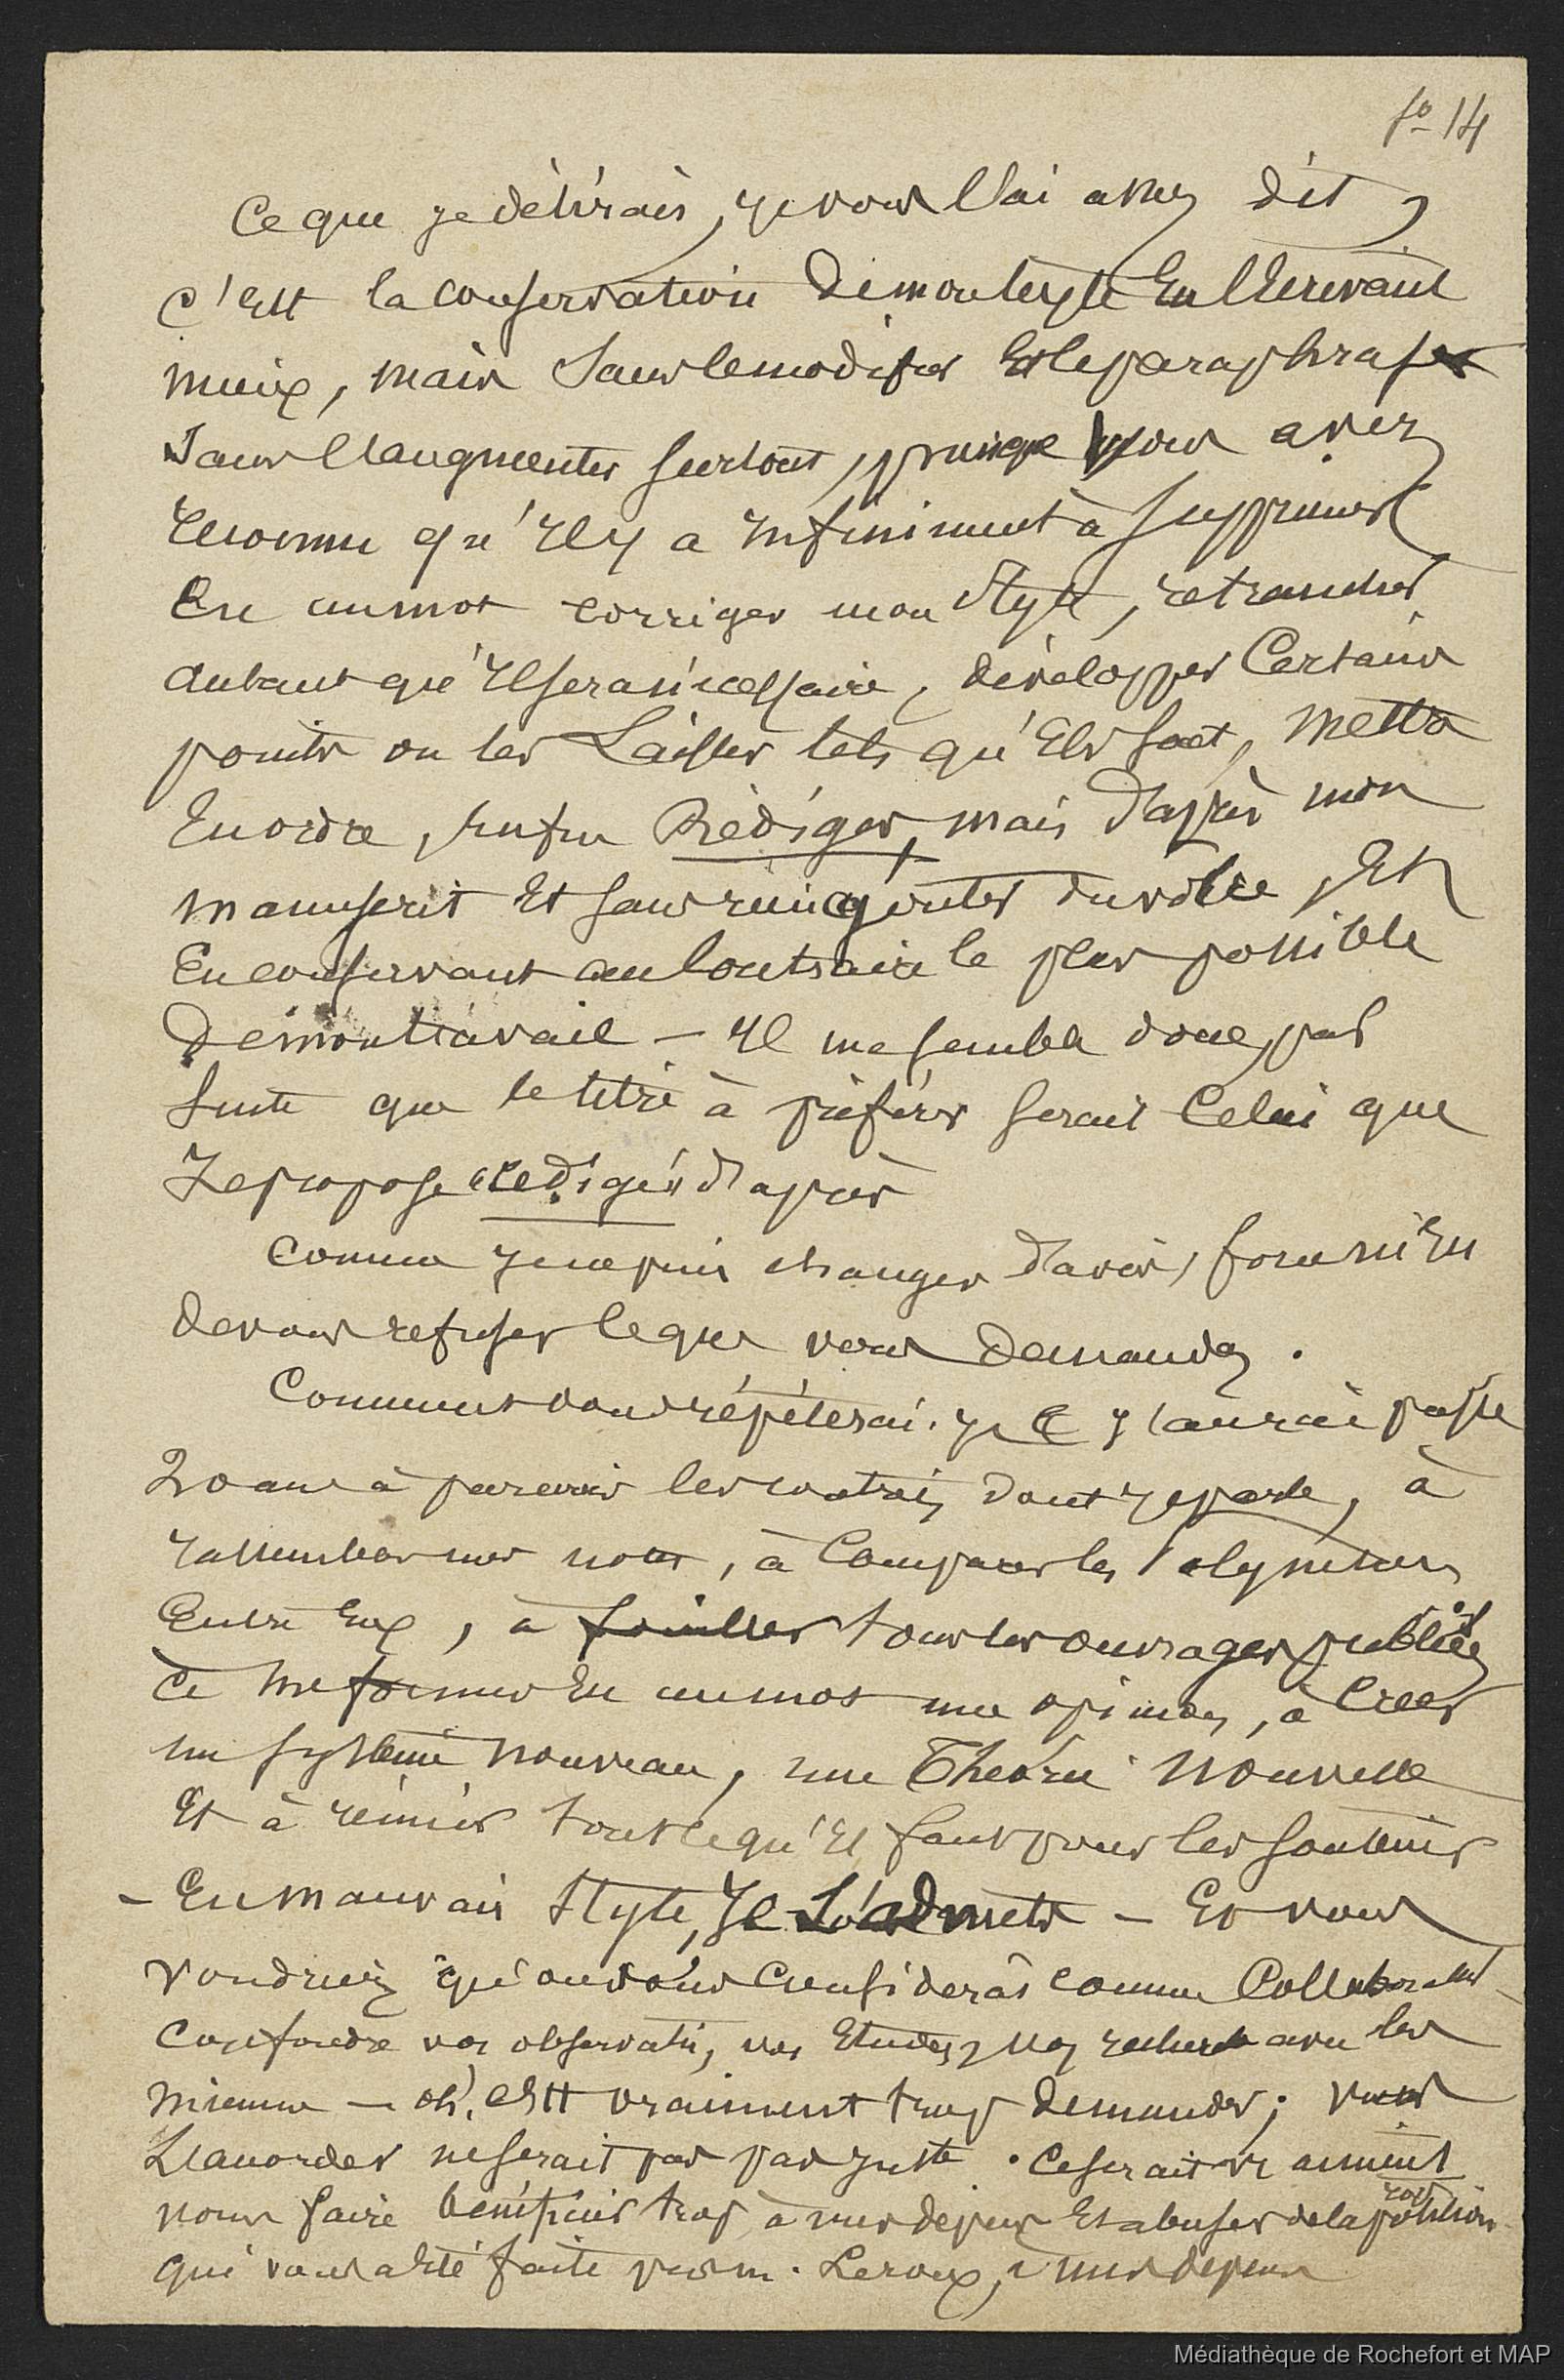 fo 14
Ce que je désirais, je vous l'ai assez dit,
c'est la conservation de mon texte en l'écrivant
mieux, mais sans le modifier et le paraphraser
sans l'augmenter surtout, puisque vous avez
reconnu qu'il y a infiniment à supprimer
En un mot corriger mon style, retrancher
autant qu'il sera nécessaire, développer certains
points ou les laisser tels qu'ils sont, mettre
en ordre, enfin Rédiger, mais d'après mon
manuscrit et sans rien ajouter du vôtre, et
en conservant au contraire le plus possible
de mon travail — Il me semble donc, par
suite que le titre à préférer serait celui que
je propose rédigés d'après
Comme je ne puis changer d'avis, force m'est
de vous refuser ce que vous demandez.
Comment vous répéterai-je j'aurai passé
20 ans à parcourir les contrées dont je parle, à
rassembler mes notes, à comparer les Polynésiens
entre eux, à fouiller tous les ouvrages publiés
à me former en un mot une opinion, à créer
un système nouveau, une théorie nouvelle
et à réunir tout ce qu'il faut pour les soutenir
— En mauvais style, je l'admets — Et vous
voudriez qu'on vous considérât comme collaborateur
confondre vos observations, vos études, vos recherches avec les
miennes — oh! c'est vraiment trop demander; vous
l'accorder ne serait pas pas juste. Ce serait vraiment
vous faire bénéficier trop à mes dépens et abuser de la position
qui vous a été faite par m. Leroux, à mes dépens
Médiathèque de Rochefort et MAP